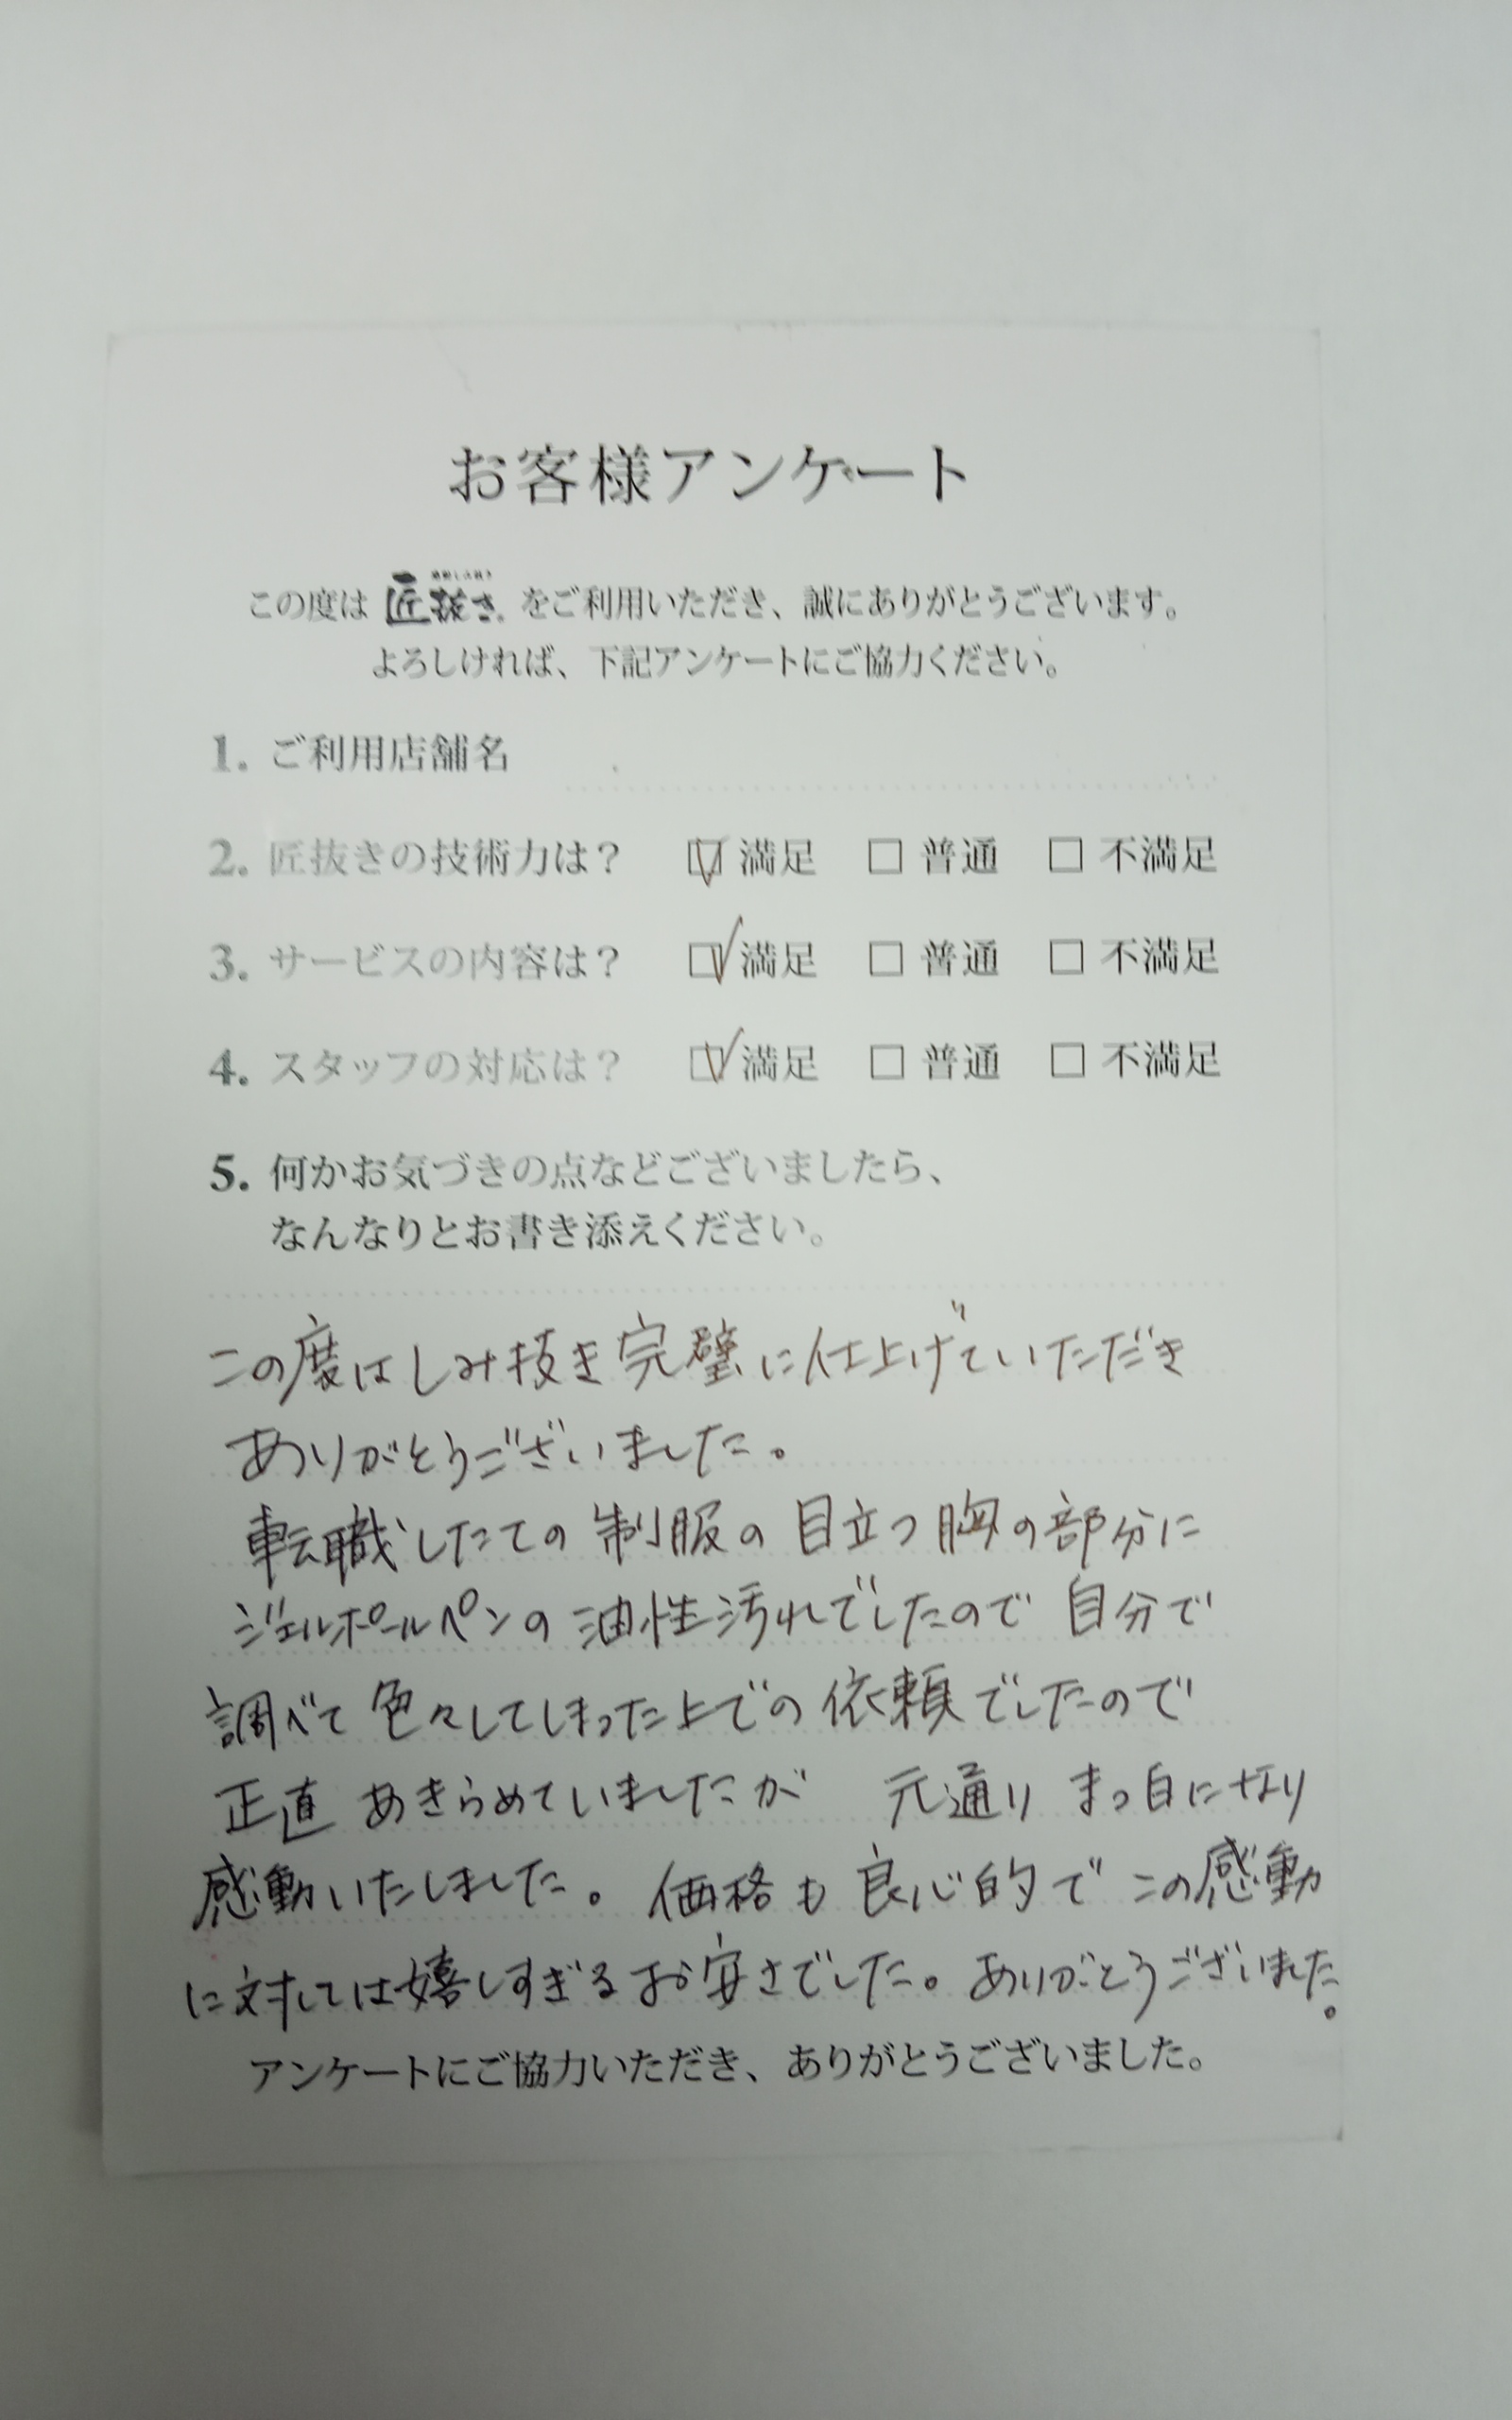 お客様アンケート
この度は 匠抜き をご利用いただき、誠にありがとうございます。
よろしければ、下記アンケートにご協力ください。
1. ご利用店舗名
2. 匠抜きの技術力は？ ☑ 満足 □ 普通 □ 不満足
3. サービスの内容は？ ☑ 満足 □ 普通 □ 不満足
4. スタッフの対応は？ ☑ 満足 □ 普通 □ 不満足
5. 何かお気づきの点などございましたら、
なんなりとお書き添えください。
この度はしみ抜き完璧に仕上げていただき
ありがとうございました。
転職したての制服の目立つ胸の部分に
ジェルボールペンの油性汚れでしたので自分で
調べて色々してしまった上での依頼でしたので
正直あきらめていましたが 元通りまっ白になり
感動いたしました。価格も良心的でこの感動
に対しては嬉しすぎるお安さでした。ありがとうございました。
アンケートにご協力いただき、ありがとうございました。